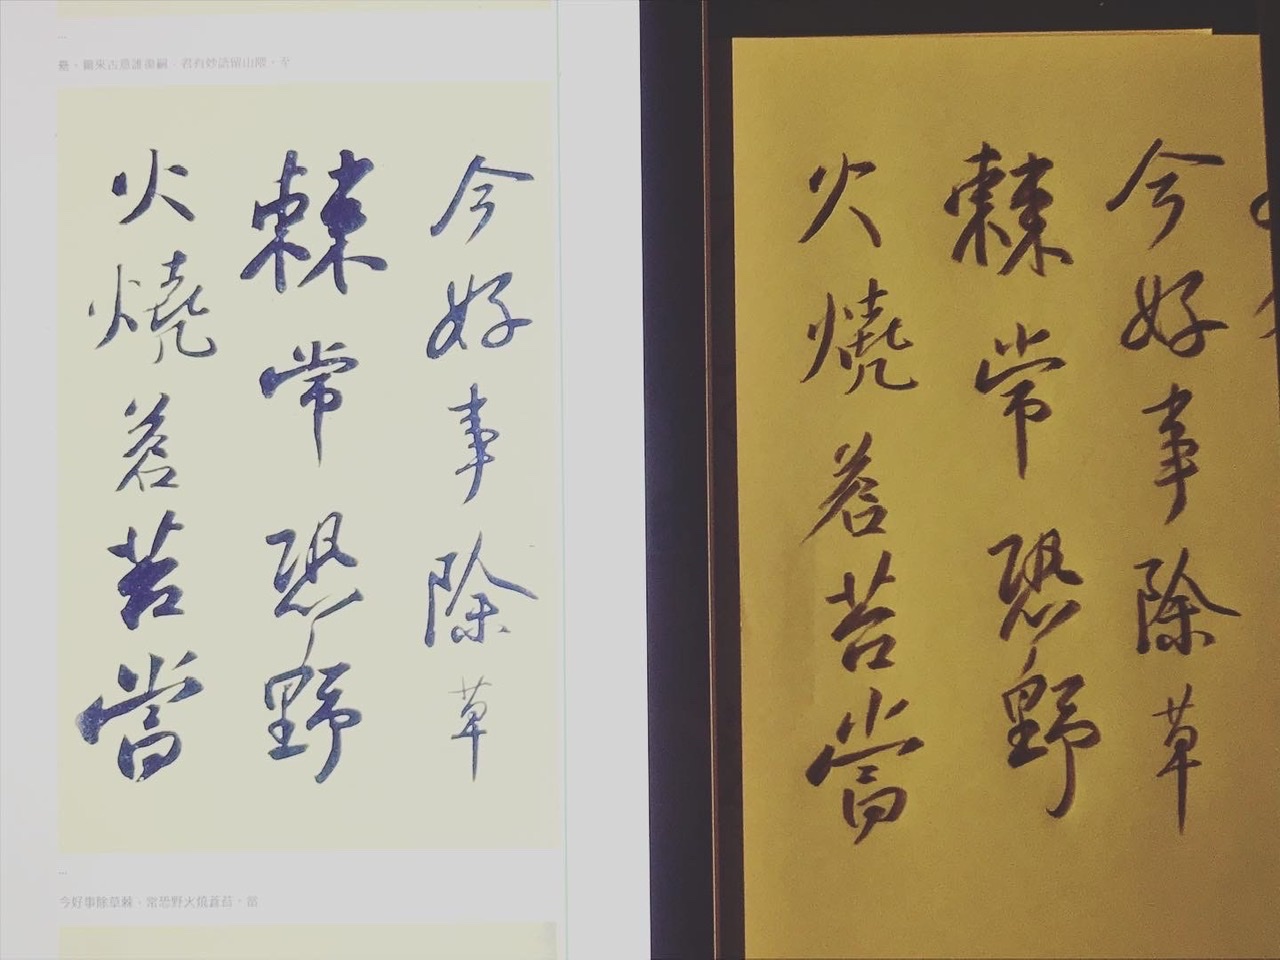 罍。爾來古意誰復嗣、君有妙語留山隈。至
今好事除草
棘常恐野
火燒蒼苔當
今好事除草棘、常恐野火燒蒼苔。當
今好事除草
棘常恐野
火燒蒼苔當